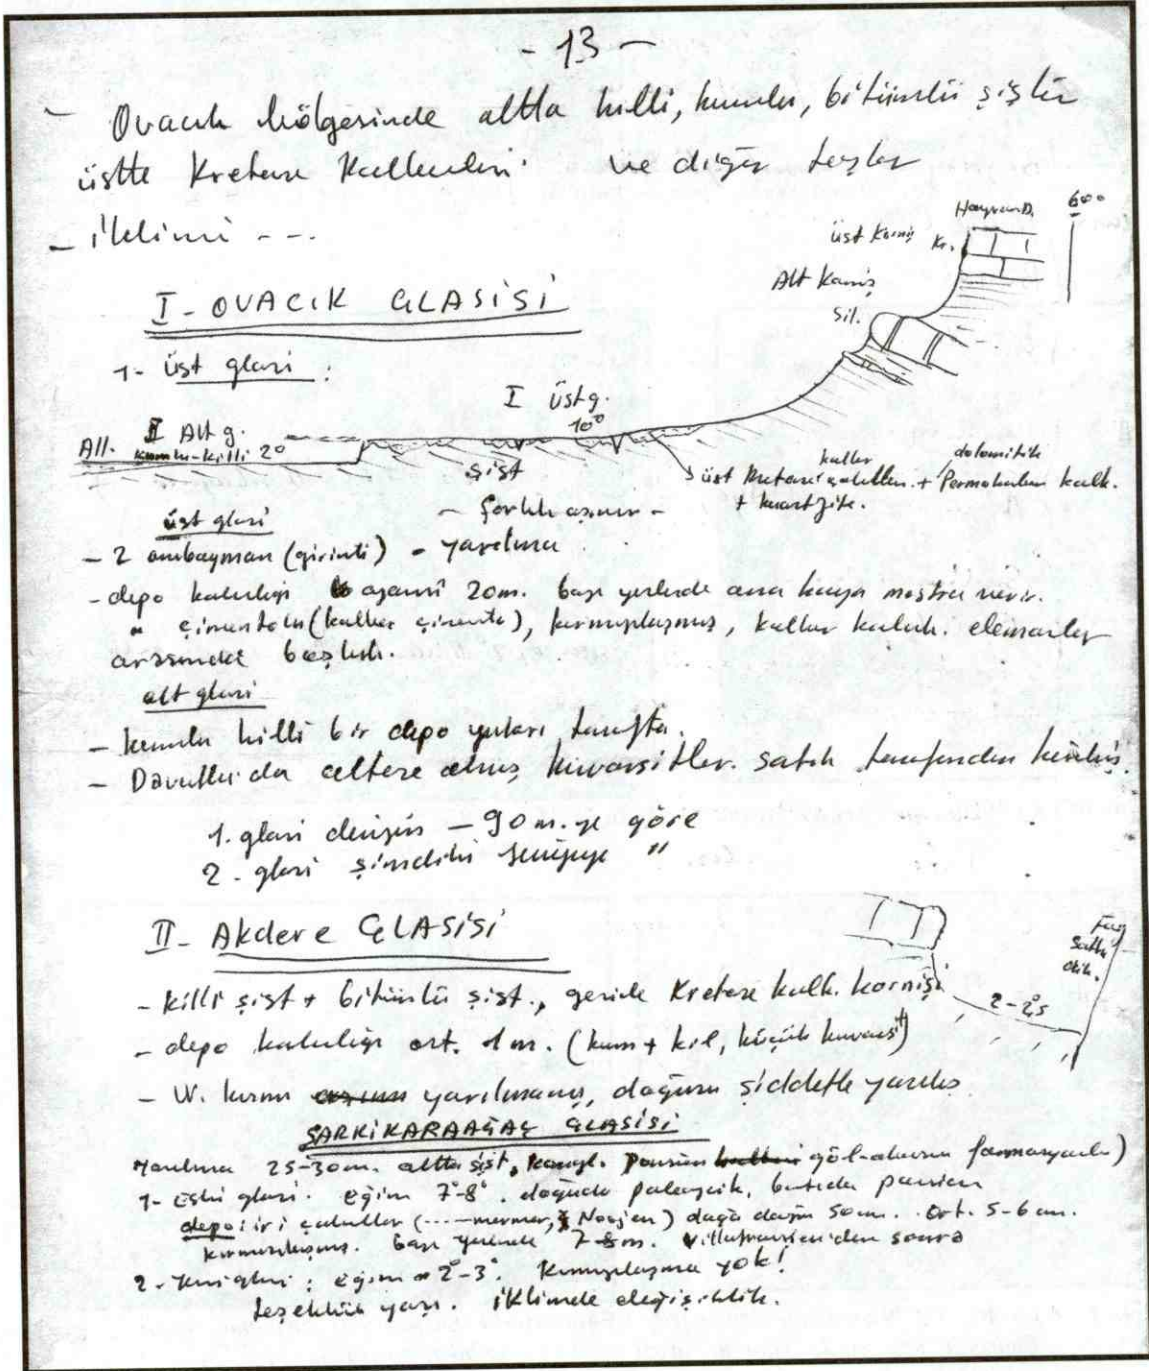 - 13 -
- Ovacık bölgesinde altta killi, kumlu, bitümlü şistler
üstte Kretase Kalkerleri ve diğer taşlar
- iklimi - - -
Hayran D. 600
üst Korniş Kr.
Alt Korniş
Sil.
I - OVACIK GLASİSİ
1- üst glasi :
I üst g.
10°
All. II Alt g.
kumlu-killi 2°
şist
kalker dolomitik
üst Kretase çakılları + Permokarbon kalk.
+ kuartzite.
- farklı aşınım -
üst glasi
- 2 ambayman (girinti) - yarılma
- depo kalınlığı azami 20m. bazı yerlerde ana kaya mostra verir.
" çimentolu (kalker çimento), kırmızılaşmış, kalker kabuk. elemanlar
arasında boşluk.
alt glasi
- kumlu killi bir depo yukarı tarafta.
- Davutlar'da altere olmuş kuvarsitler. satıh tarafından kesilmiş.
1. glasi denizin - 90 m. ye göre
2. glasi şimdiki seviyeye "
II - Akdere GLASİSİ
Fay
Sathı
dik.
2-2°5
- killi şist + bitümlü şist., geride Kretase kalk. kornişi
- depo kalınlığı ort. 1 m. (kum + kil, küçük kuvarsit)
- W. kısmı yarılmamış, doğusu şiddetle yarılmış
ŞARKİKARAAĞAÇ GLASİSİ
Yarılma 25-30m. altta şist, kongl. Ponsien göl-akarsu formasyonlu)
1- Eski glasi. eğim 7°-8°. doğuda paleozoik, batıda ponsien
depo: iri çakıllar (....mermer, Neojen) dağa doğru 50 cm. Ort. 5-6 cm.
kırmızılaşmış. bazı yerlerde 7-8m. villafransien'den sonra
2- Yeni glasi : eğim = 2°-3°. Kırmızılaşma yok!
teşekkül yaşı. iklimde değişiklik.